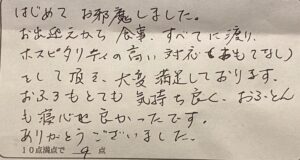 はじめて お邪魔しました。
お出迎えから 食事、すべてに渡り、
ホスピタリティの高い 対応(おもてなし)
をして頂き、大変 満足しております。
おふろもとても 気持ち良く、おふとん
も 寝心地 良かったです。
ありがとうございました。
10点満点で 9 点